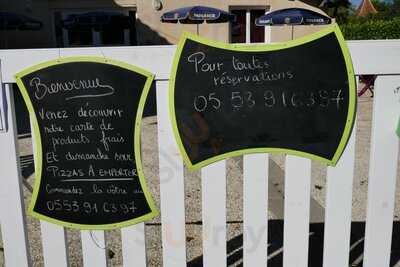 Bienvenue
Venez découvrir
notre carte de
produits frais
Et dimanche soir
PIZZAS À EMPORTER
Commandez la vôtre au
05 53 91 63 97
Pour toutes
réservations
05 53 91 63 97